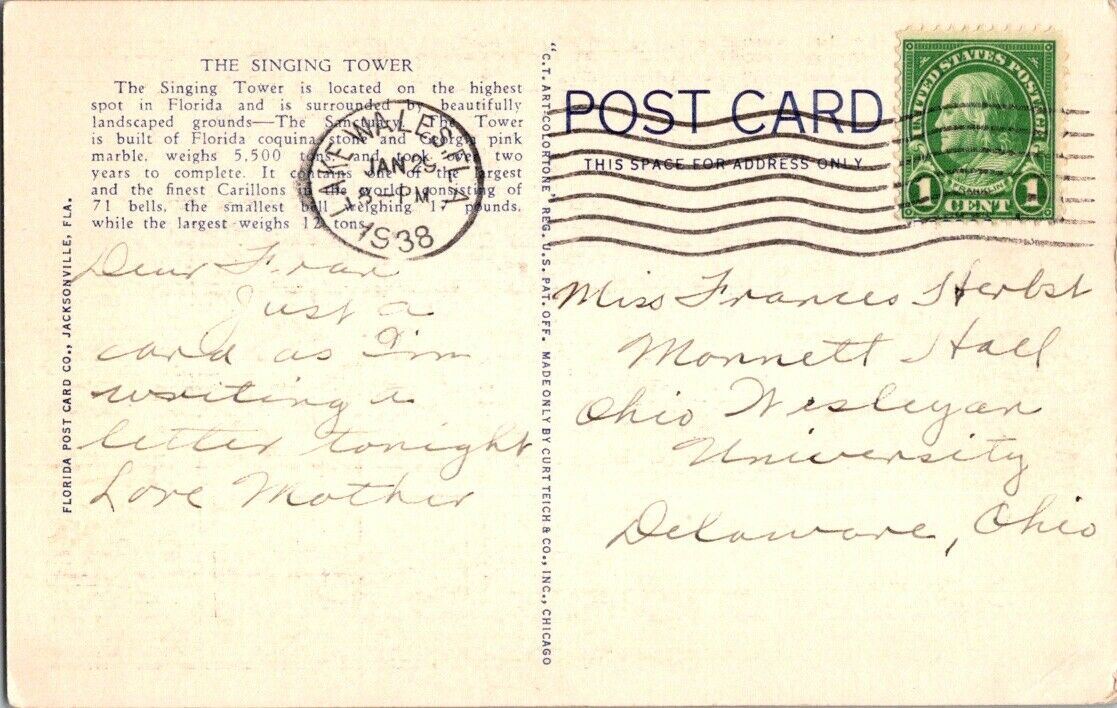 THE SINGING TOWER
The Singing Tower is located on the highest
spot in Florida and is surrounded by beautifully
landscaped grounds—The Sanctuary. The Tower
is built of Florida coquina stone and Georgia pink
marble, weighs 5,500 tons, and took over two
years to complete. It contains one of the largest
and the finest Carillons in the world, consisting of
71 bells, the smallest bell weighing 17 pounds,
while the largest weighs 12 tons.
LAKE WALES, FLA
JAN 29
PM
1938
Dear Fran
Just a
card as I'm
writing a
letter tonight
Love Mother
FLORIDA POST CARD CO., JACKSONVILLE, FLA.
"C.T. ART-COLORTONE" REG. U.S. PAT. OFF. MADE ONLY BY CURT TEICH & CO., INC., CHICAGO
POST CARD
THIS SPACE FOR ADDRESS ONLY
UNITED STATES POSTAGE
FRANKLIN
1 CENT 1
Miss Frances Herbst
Monnett Hall
Ohio Wesleyan
University
Delaware, Ohio